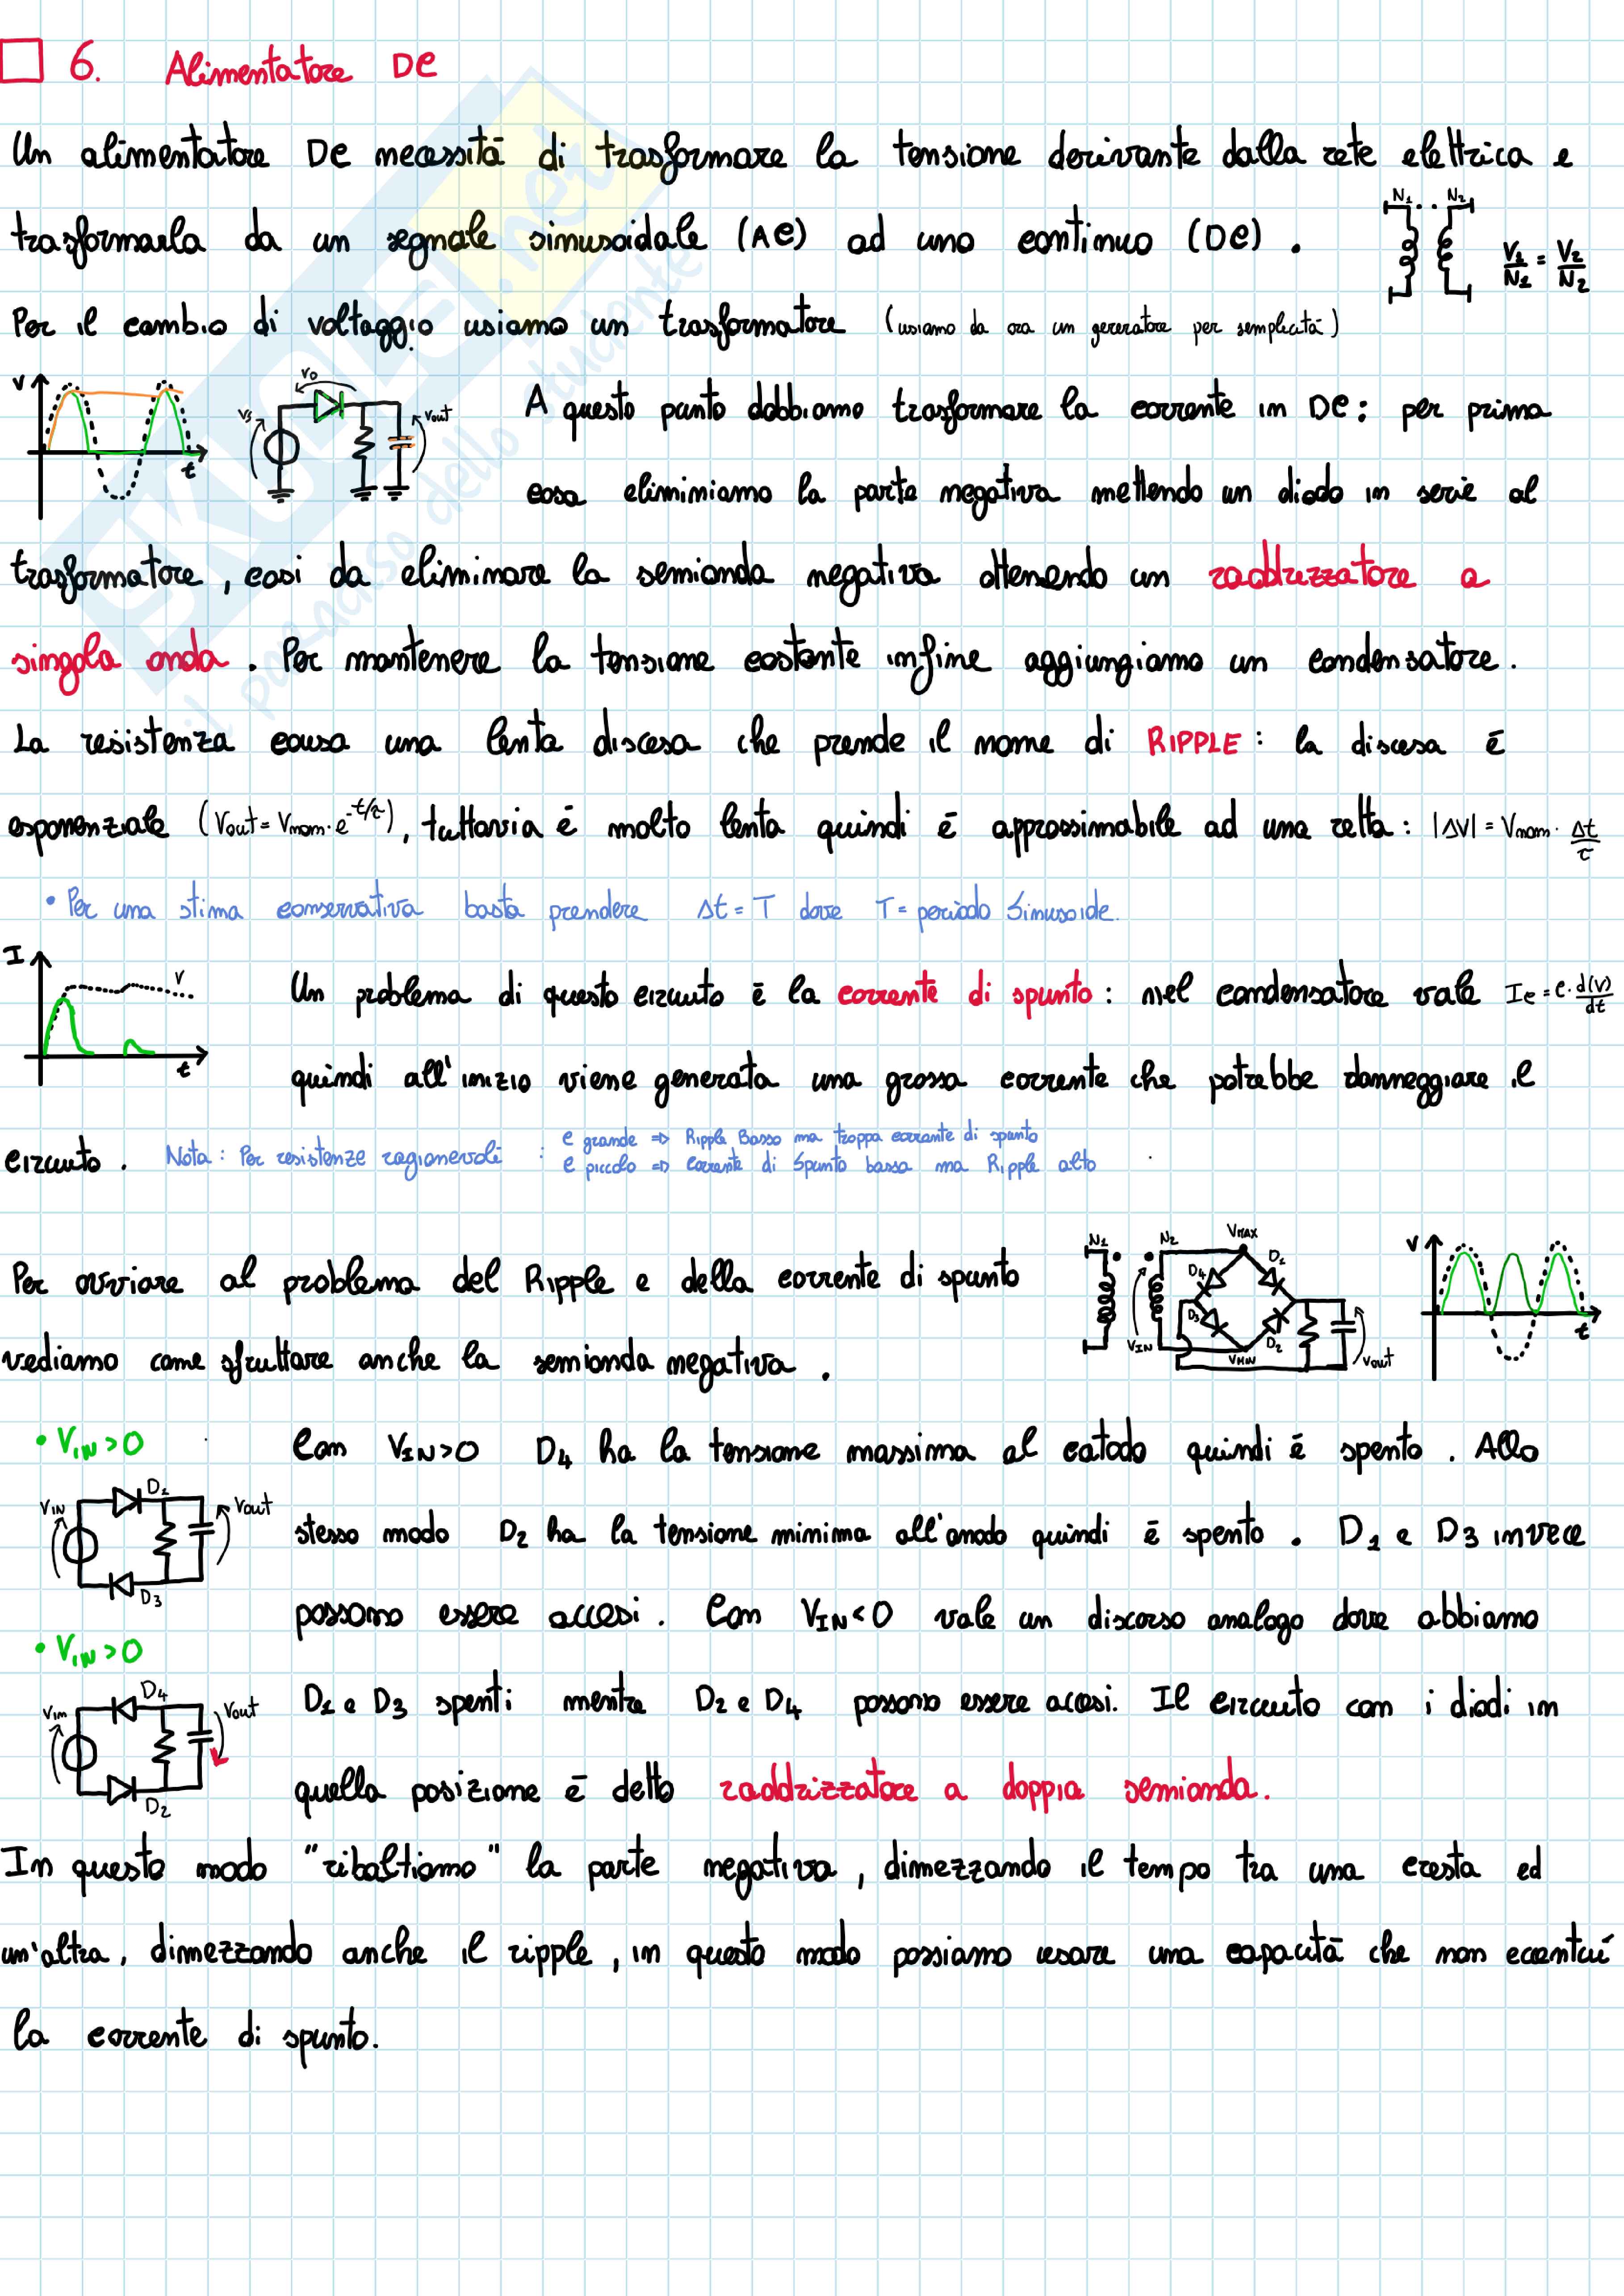 6. Alimentatore DC
Un alimentatore DC necessità di trasformare la tensione derivante dalla rete elettrica e
trasformarla da un segnale sinusoidale (AC) ad uno continuo (DC).
N1 N2
V1/N1 = V2/N2
Per il cambio di voltaggio usiamo un trasformatore (usiamo da ora un generatore per semplicità)
V t
Vs VD Vout
A questo punto dobbiamo trasformare la corrente in DC: per prima
cosa eliminiamo la parte negativa mettendo un diodo in serie al
trasformatore, cosi da eliminare la semionda negativa ottenendo un raddrezzatore a
singola onda. Per mantenere la tensione costante infine aggiungiamo un condensatore.
La resistenza causa una lenta discesa che prende il nome di RIPPLE: la discesa è
esponenziale (Vout = Vnom · e^-t/τ), tuttavia è molto lenta quindi è approssimabile ad una retta: |ΔV| = Vnom · Δt/τ
• Per una stima conservativa basta prendere Δt = T dove T = periodo Sinusoide.
I V t
Un problema di questo circuito è la corrente di spunto: nel condensatore vale Ic = C · d(V)/dt
quindi all'inizio viene generata una grossa corrente che potrebbe danneggiare il
circuito. Nota: Per resistenze ragionevoli :
C grande => Ripple Basso ma troppa corrente di spunto
C piccolo => Corrente di Spunto bassa ma Ripple alto
Per ovviare al problema del Ripple e della corrente di spunto
vediamo come sfruttare anche la semionda negativa.
N1 N2 VMAX D4 D1 D3 D2 VIN VMIN Vout
V t
• VIN>0
Con VIN>0 D4 ha la tensione massima al catodo quindi è spento. Allo
VIN D1 Vout D3
stesso modo D2 ha la tensione minima all'anodo quindi è spento. D1 e D3 invece
possono essere accesi. Con VIN<0 vale un discorso analogo dove abbiamo
• VIN>0
Vin D4 Vout D2
D1 e D3 spenti mentre D2 e D4 possono essere accesi. Il circuito con i diodi in
quella posizione è detto raddrizzatore a doppia semionda.
In questo modo "ribaltiamo" la parte negativa, dimezzando il tempo tra una cresta ed
un'altra, dimezzando anche il ripple, in questo modo possiamo usare una capacità che non
la corrente di spunto.
SKUOLA.net
il paradiso dello studente